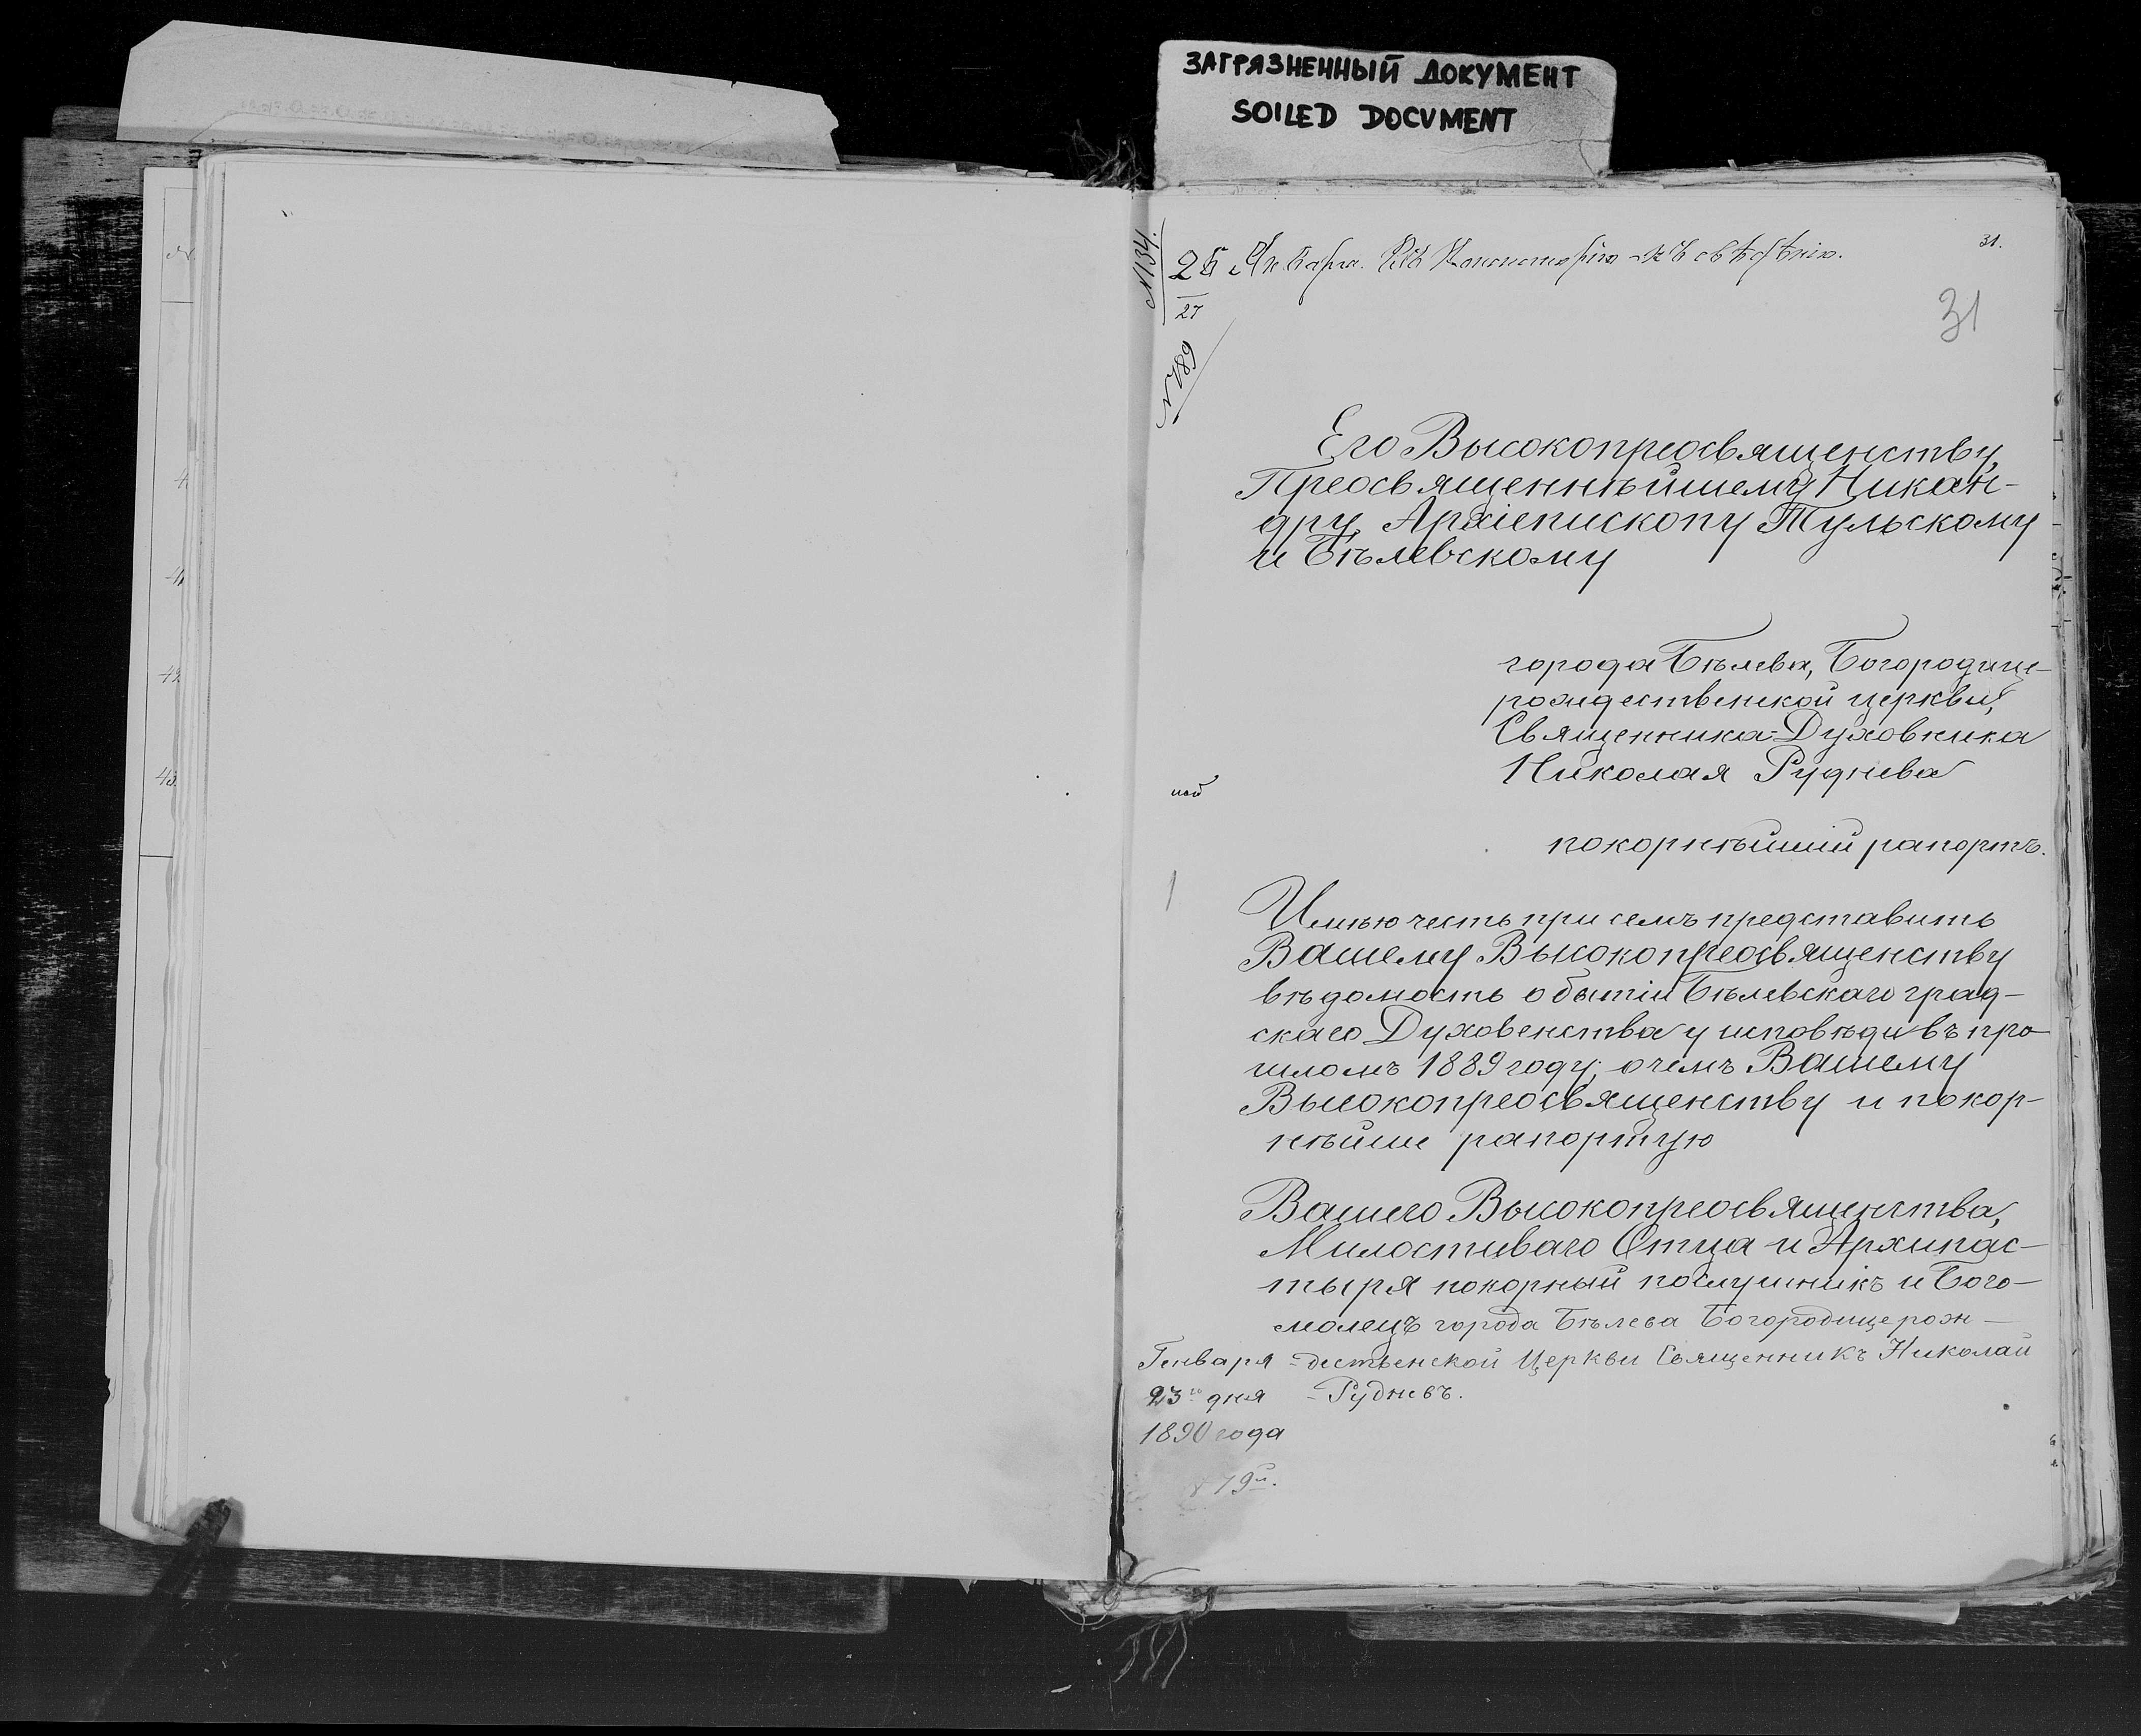 ЗАГРЯЗНЕННЫЙ ДОКУМЕНТ
SOILED DOCUMENT
31.
N 134.
25 Января. Въ Консисторію къ свѣдѣнію.
27
N 789
31
Его Высокопреосвященству,
Преосвященнѣйшему Никан-
дру, Архіепископу Тульскому
и Бѣлевскому
города Бѣлева, Богородице-
рождественской церкви,
Священника-Духовника
Николая Руднева
покорнѣйшій рапортъ.
Имѣю честь при семъ представить
Вашему Высокопреосвященству
вѣдомость о бытіи Бѣлевскаго град-
скаго Духовенства у исповѣди въ про-
шломъ 1889 году; о чемъ Вашему
Высокопреосвященству и покор-
нѣйше рапортую
Вашего Высокопреосвященства,
Милостиваго Отца и Архипас-
тыря покорный послушникъ и Бого-
молецъ города Бѣлева Богородицерож-
дественской Церкви Священникъ Николай
Рудневъ.
Генваря
23го дня
1890 года
40
41
42
43.